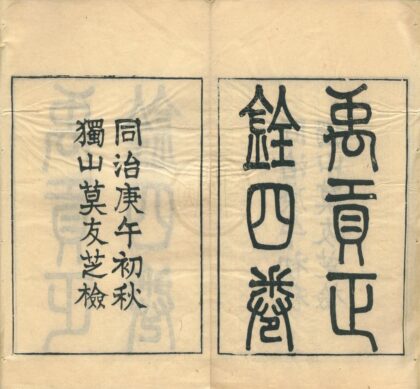 禹貢正
銓四卷
同治庚午初秋
獨山莫友芝檢